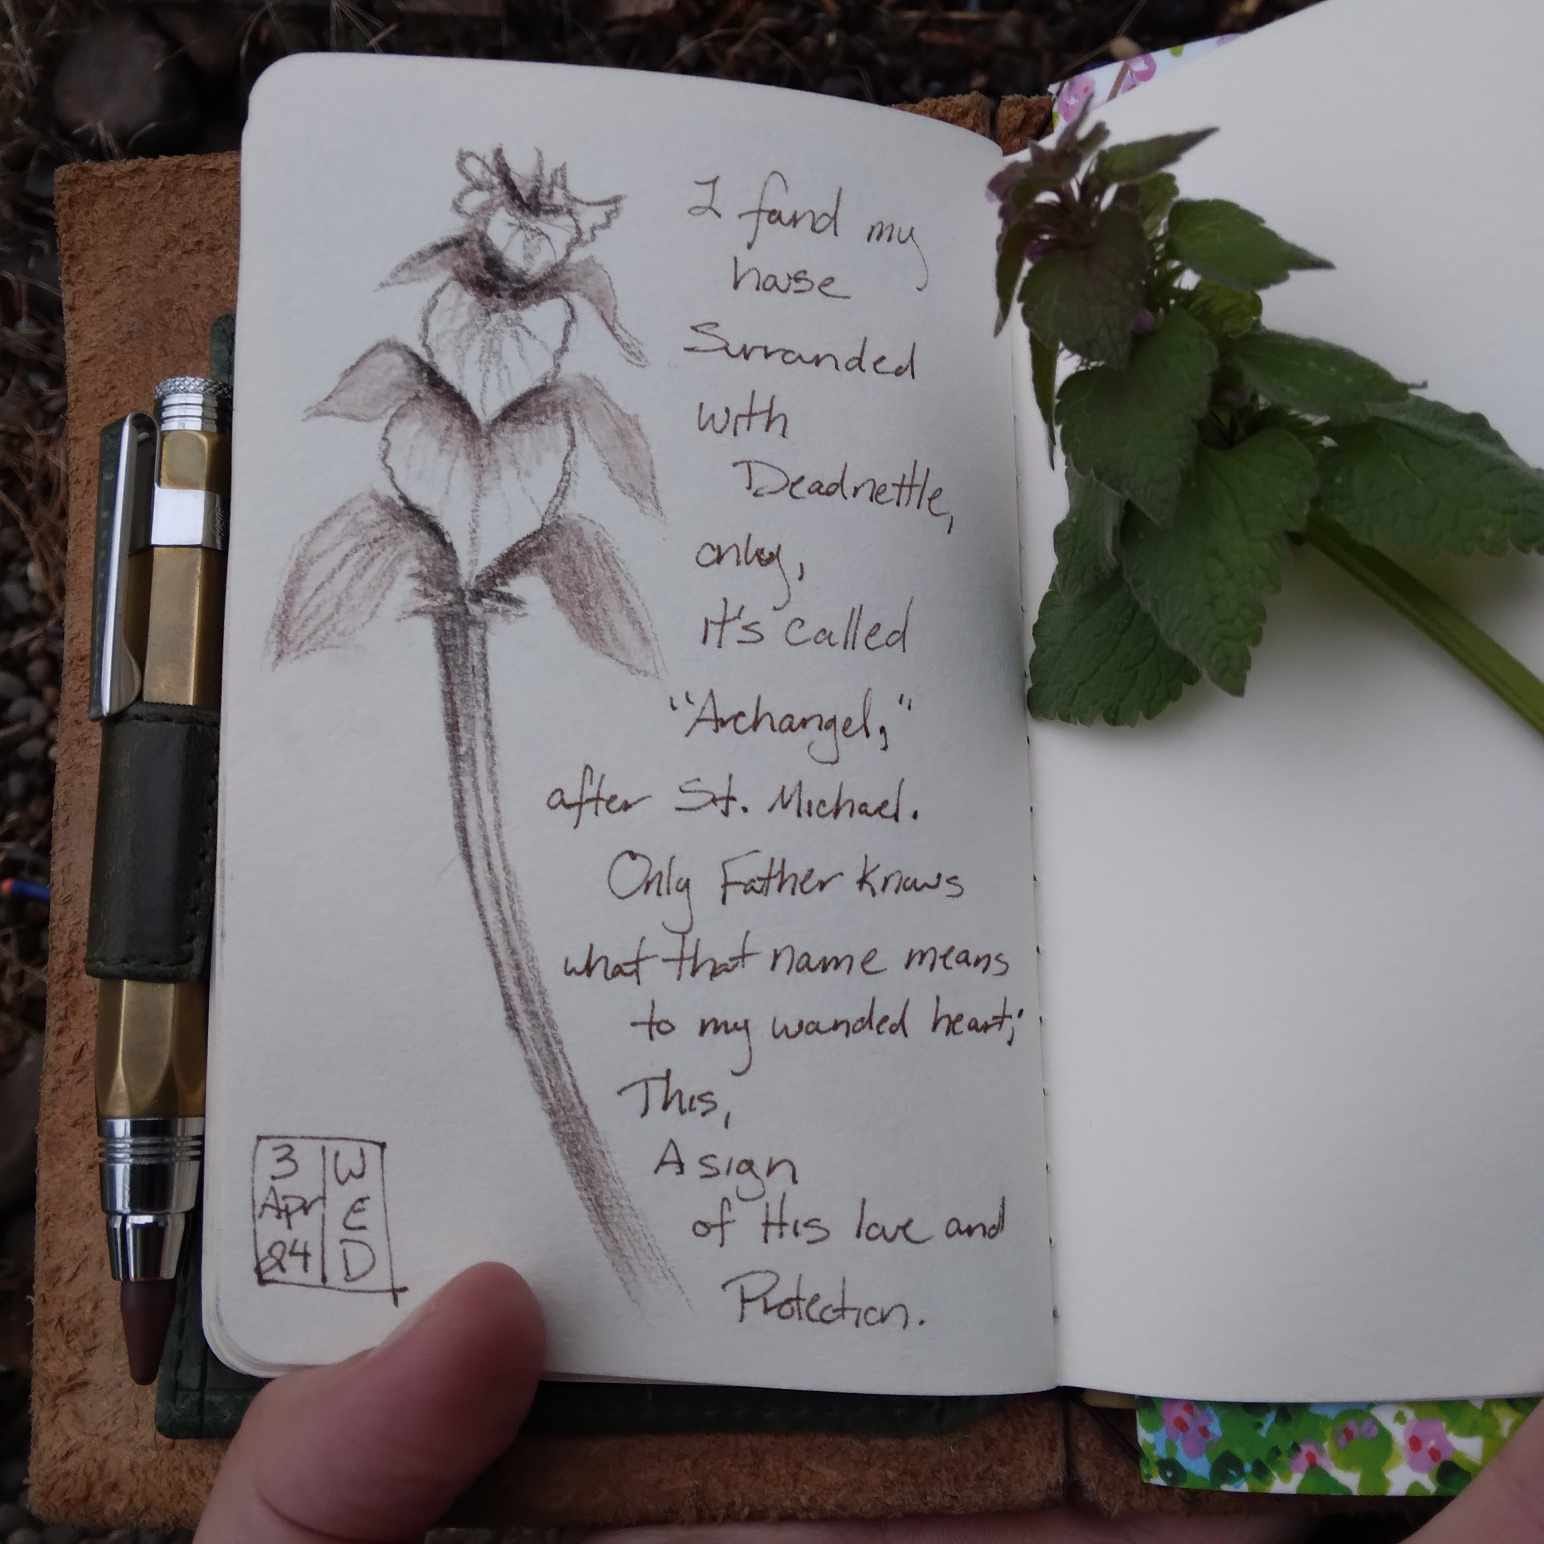 I found my
house
Surrounded
with
Deadnettle,
only,
it's called
"Archangel,"
after St. Michael.
Only Father knows
what that name means
to my wounded heart;
This,
A sign
of His love and
Protection.
3
Apr
24
W
E
D